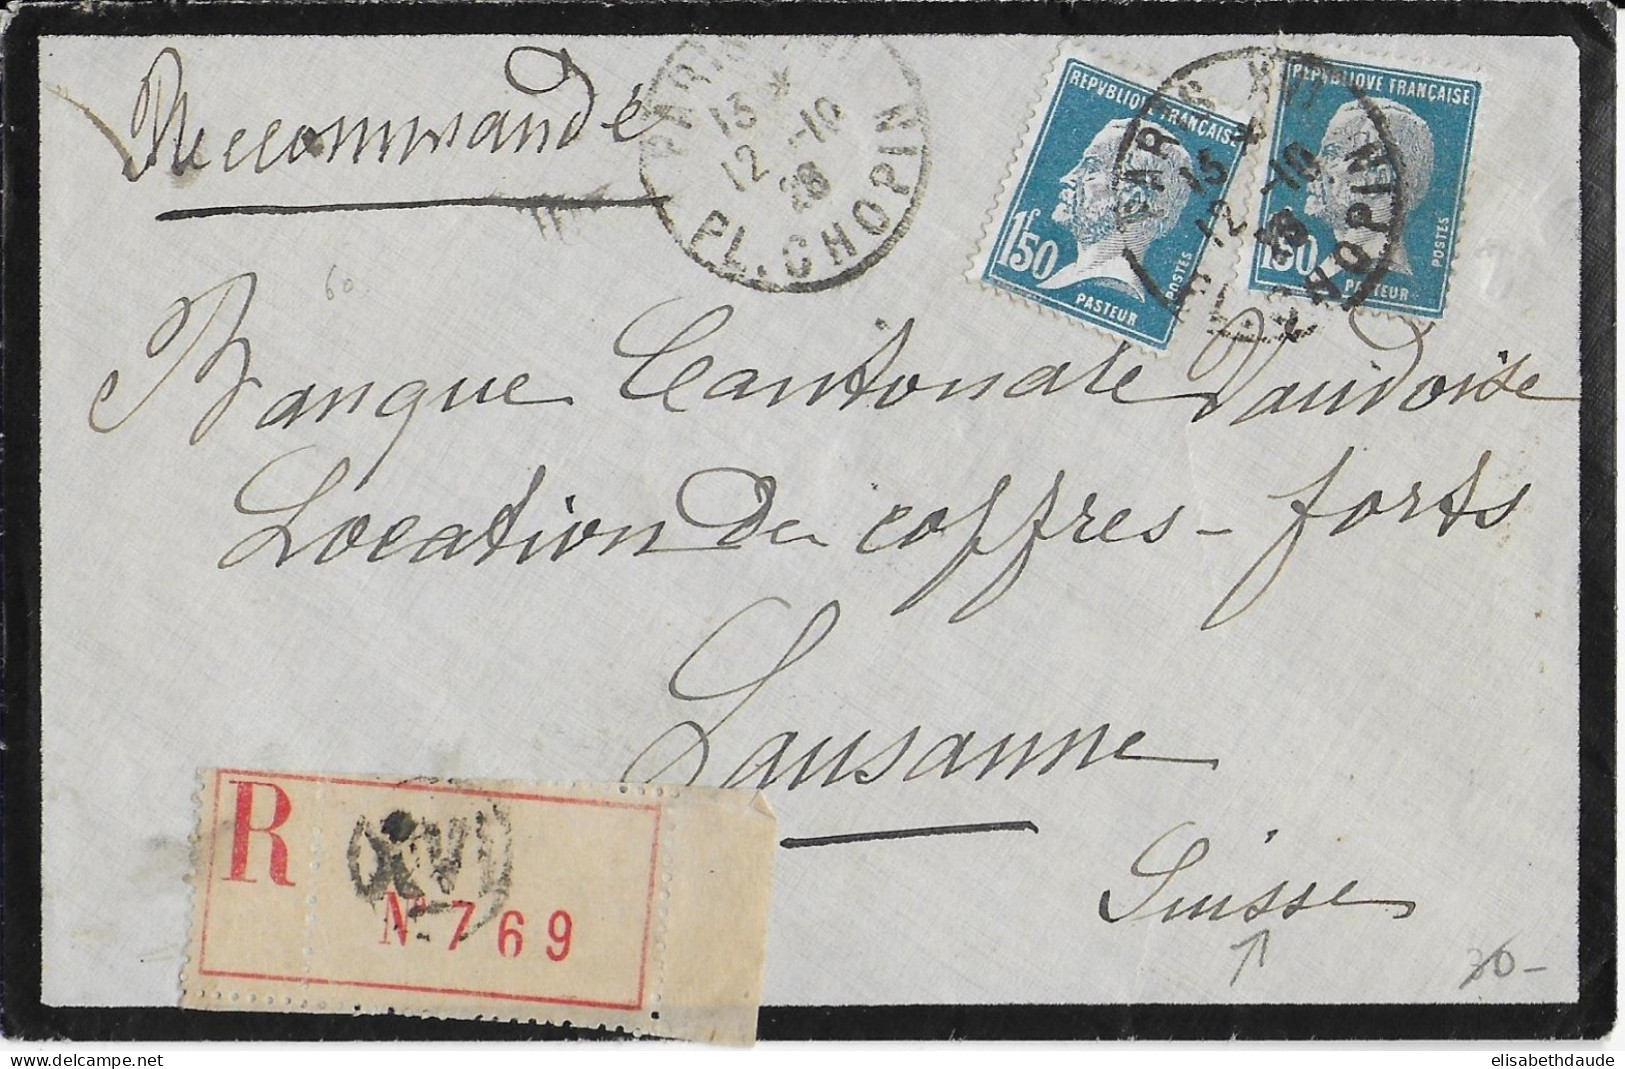 Recommandé
PARIS XVI
15 *
12 -10
26
PL. CHOPIN
REPVBLIQVE FRANÇAISE
1f50
POSTES
PASTEUR
REPVBLIQVE FRANÇAISE
1f50
POSTES
PASTEUR
PARIS XVI
15 *
12 -10
PL. CHOPIN
60
Banque Cantonale Vaudoise
Location de coffres-forts
Lausanne
Suisse
R
XVI
No 769
elisabethdaude